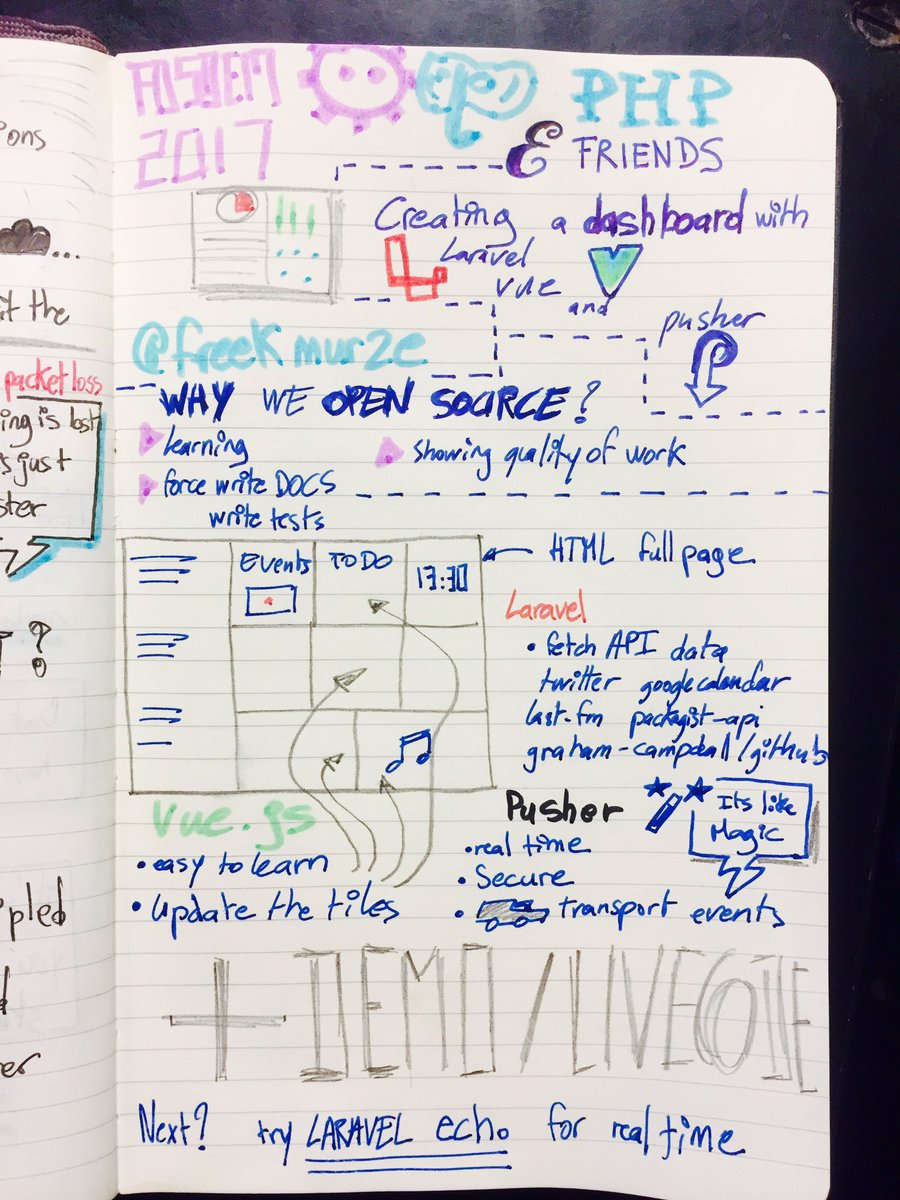 FOSDEM
2017
PHP
& FRIENDS
Creating a dashboard with
Laravel
vue and
pusher
@freekmurze
WHY WE OPEN SOURCE?
learning
showing quality of work
force write DOCS
write tests
Events
TODO
13:30
HTML full page
Laravel
• fetch API data
twitter google calendar
last-fm packagist-api
graham-campdall/github
vue.js
• easy to learn
• update the tiles
Pusher
• real time
• Secure
• transport events
Its like
Magic
+ DEMO / LIVECODE
Next? try LARAVEL echo for real time
ions
...
it the
packet loss
ing is lost
s just
ster
?
pled
er